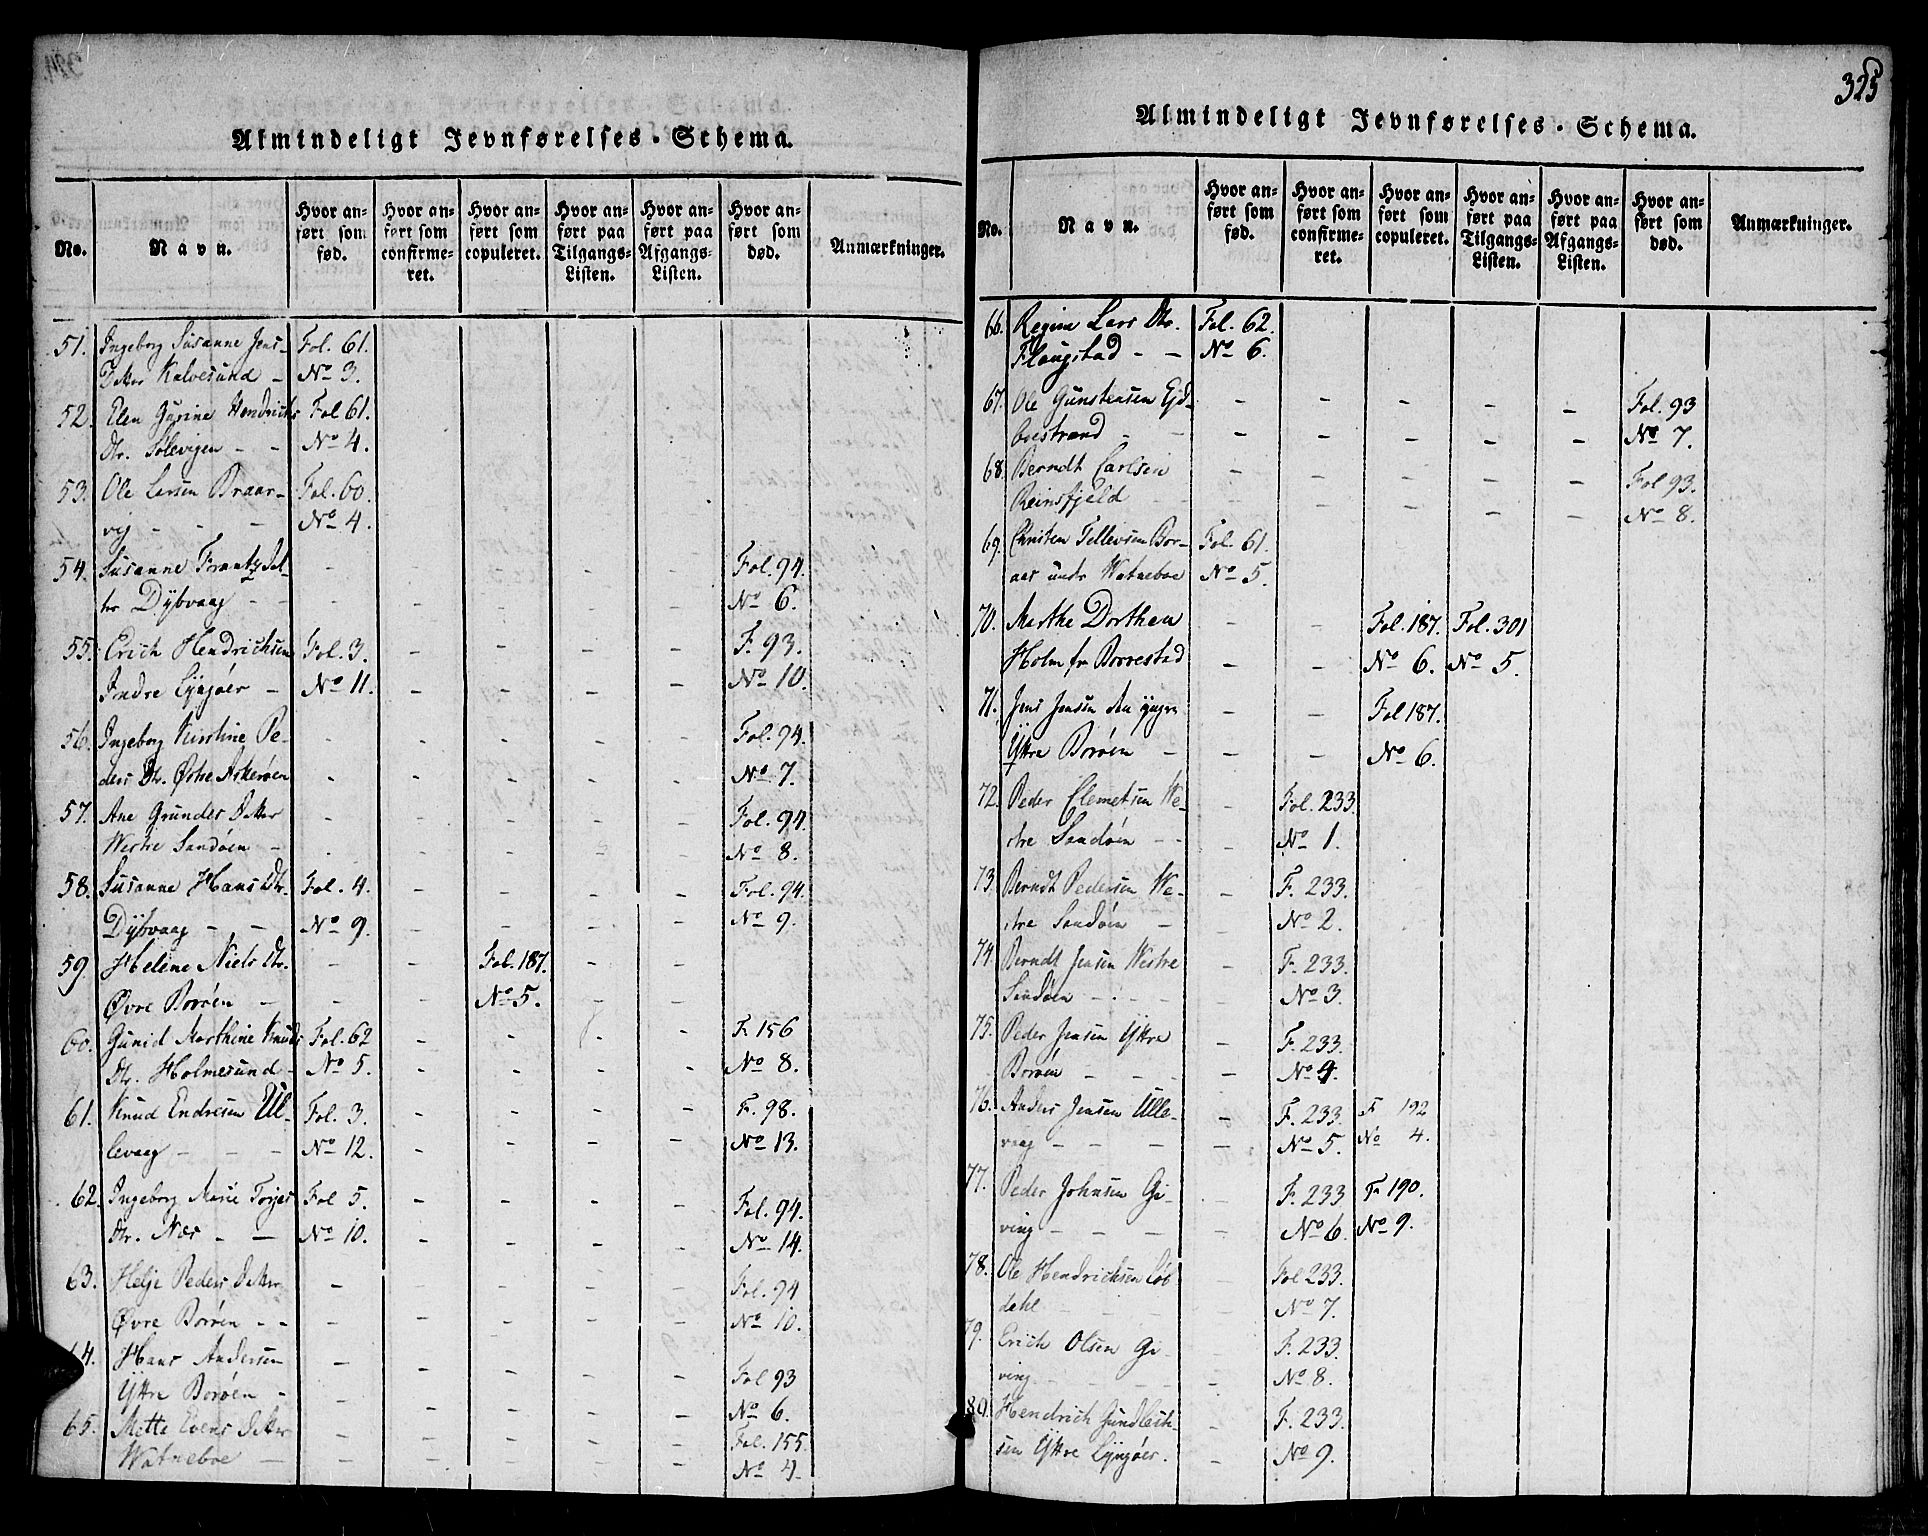 325
Almindeligt Jevnførelses-Schema.
No.
Navn.
Hvor anført som fød.
Hvor anført som confirmeret.
Hvor anført som copuleret.
Hvor anført paa Tilgangs-Listen.
Hvor anført paa Afgangs-Listen.
Hvor anført som død.
Anmærkninger.
51. Ingeborg Susanne Jens- Fol. 61.
Datter Kalvesund - No 3.
52. Elen Gurine Hendrichs Fol 61.
Dtr. Solevigen - - No 4.
53. Ole Larsen Braar- Fol. 60.
vig - - - No 4.
54. Susanne Frantz Dat- - - - - - Fol. 94.
ter Dybvaag - - - - - - - No 6.
55. Erich Hendrichsen Fol. 3. - - - - F. 93.
Indre Lyngøer - No 11. - - - - No 10.
56. Ingeborg Kirstine Pe- - - - - - Fol. 94.
ders Dtr. Østre Askerøen - - - - - No 7.
57. Ane Gunders Datter - - - - - Fol. 94.
Westre Sandøen - - - - - - No 8.
58. Susanne Hans Dtr. Fol. 4. - - - - Fol. 94.
Dybvaag - - No 9. - - - - No 9.
59. Helene Niels Dtr. - - Fol. 187. - -
Øvre Borøen - - - No 5. - -
60. Gunild Marthine Knuds Fol. 62 - - - - F. 156
Dtr. Holmesund - No 5. - - - - No 8.
61. Knud Endresen Ul- Fol. 3. - - - - F. 98.
levaag - - - No 12. - - - No 13.
62. Ingeborg Marie Torjes Fol 5. - - - - Fol. 94.
Dtr. Næs - - No 10. - - - - No 14.
63. Helje Peders Datter - - - - - Fol. 94
Øvre Borøen - - - - - - - No 10.
64. Hans Andersen - - - - - Fol 93
Ytre Borøen - - - - - - No 6.
65. Mette Evens Datter - - - - - Fol. 155.
Watneboe - - - - - - No 4.
Almindeligt Jevnførelses-Schema.
No.
Navn.
Hvor anført som fød.
Hvor anført som confirmeret.
Hvor anført som copuleret.
Hvor anført paa Tilgangs-Listen.
Hvor anført paa Afgangs-Listen.
Hvor anført som død.
Anmærkninger.
66. Regine Lars Dtr. Fol. 62.
Flougstad - - No 6.
67. Ole Gunstensen Ejd- - - - - - Fol. 93
boestrand - - - - - - - No 7.
68. Berndt Carlsen - - - - - Fol 93.
Reinsfjeld - - - - - - No 8.
69. Christen Tellevsen Bor- Fol. 61.
aas under Watneboe No 5.
70. Marthe Dorthea - - Fol. 187. Fol. 301
Holm fr Borrestad - - No 6. No 5.
71. Jens Jensen den yngre - - Fol 187.
Yttre Borøen - - - No 6.
72. Peder Clemetsen We- - Fol. 233
stre Sandøen - - - No 1.
73. Berndt Pedersen We- - F. 233.
stre Sandøen - - No 2.
74. Berndt Jensen Westre - F. 233.
Sandøen - - - - No 3.
75. Peder Jensen Yttre - F. 233.
Borøen - - - - No 4.
76. Anders Jensen Ulle- - F. 233. F 192
vaag - - - - No 5. No 4.
77. Peder Johnsen Gi- - F. 233 F. 190.
ving - - - - No 6 No 9.
78. Ole Hendrichsen Løv - Fol 233.
dahl - - - - No 7.
79. Erich Olsen Gi- - F. 233.
ving - - - - No 8.
80. Hendrich Gundbest- - F. 233.
sen Yttre Lyngøer. - No 9.